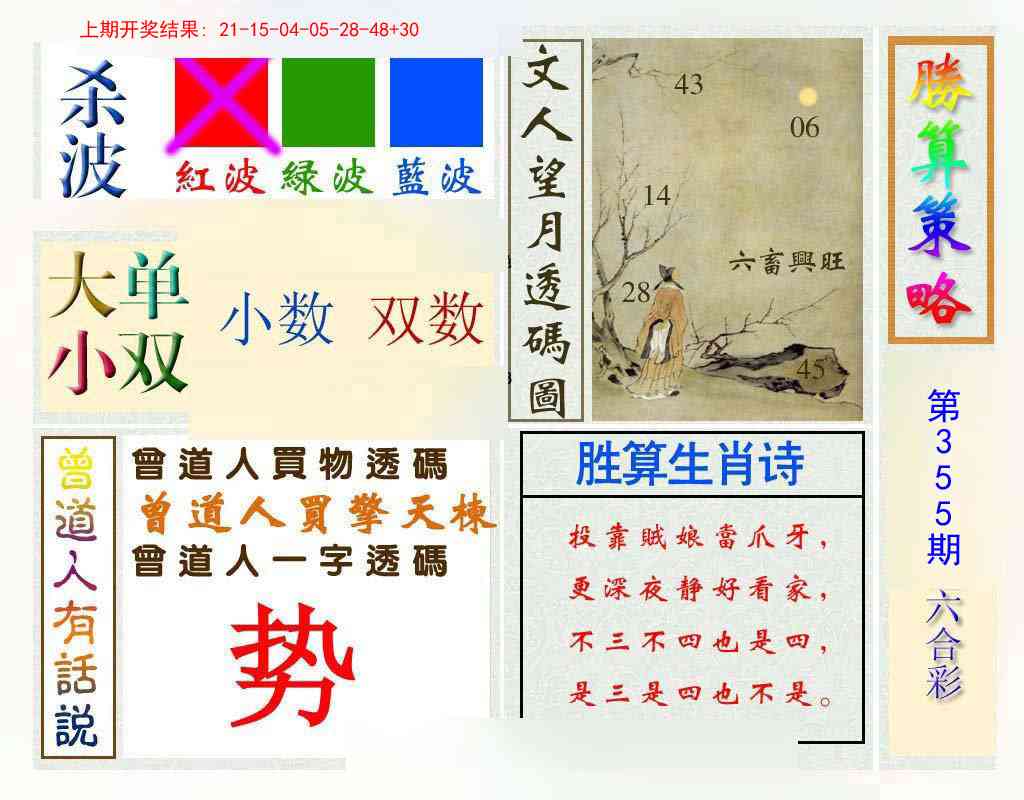 上期开奖结果: 21-15-04-05-28-48+30
杀波
紅波
緑波
藍波
大单
小双
小数
双数
文人望月透碼圖
43
06
14
六畜興旺
28
45
勝算策略
第355期
六合彩
曾道人有話説
曾道人買物透碼
曾道人買擎天棟
曾道人一字透碼
势
胜算生肖诗
投靠賊娘當爪牙，
更深夜静好看家，
不三不四也是四，
是三是四也不是。